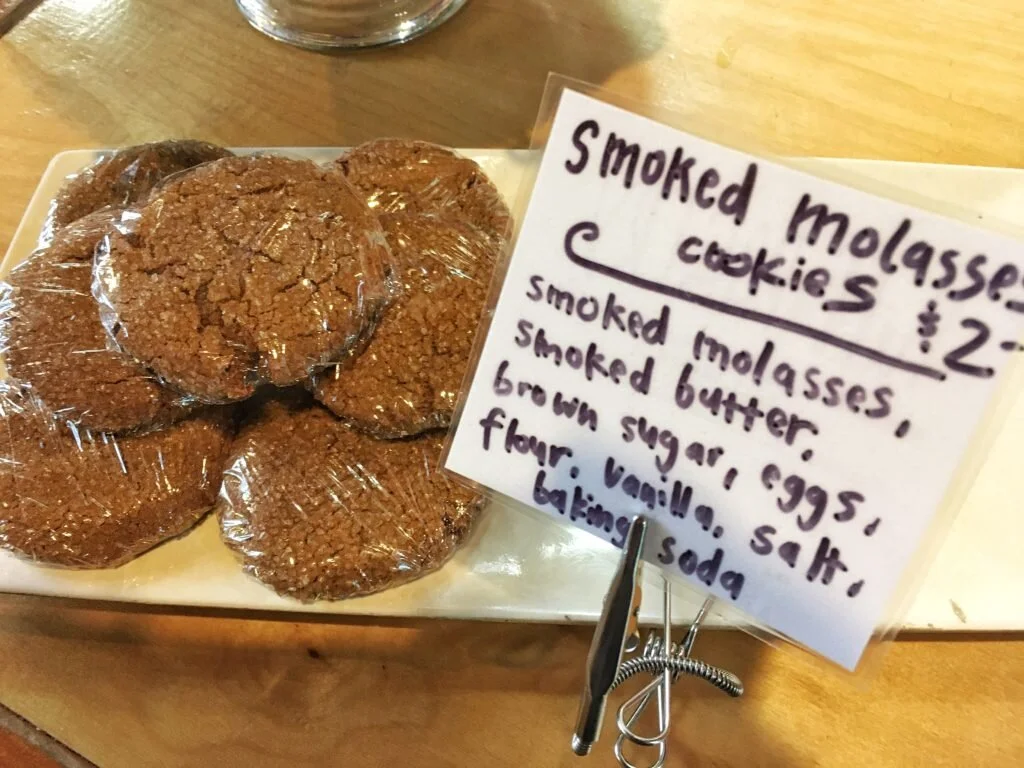 Smoked molasses
cookies $2-
smoked molasses,
smoked butter,
brown sugar, eggs,
flour, vanilla, salt,
baking soda